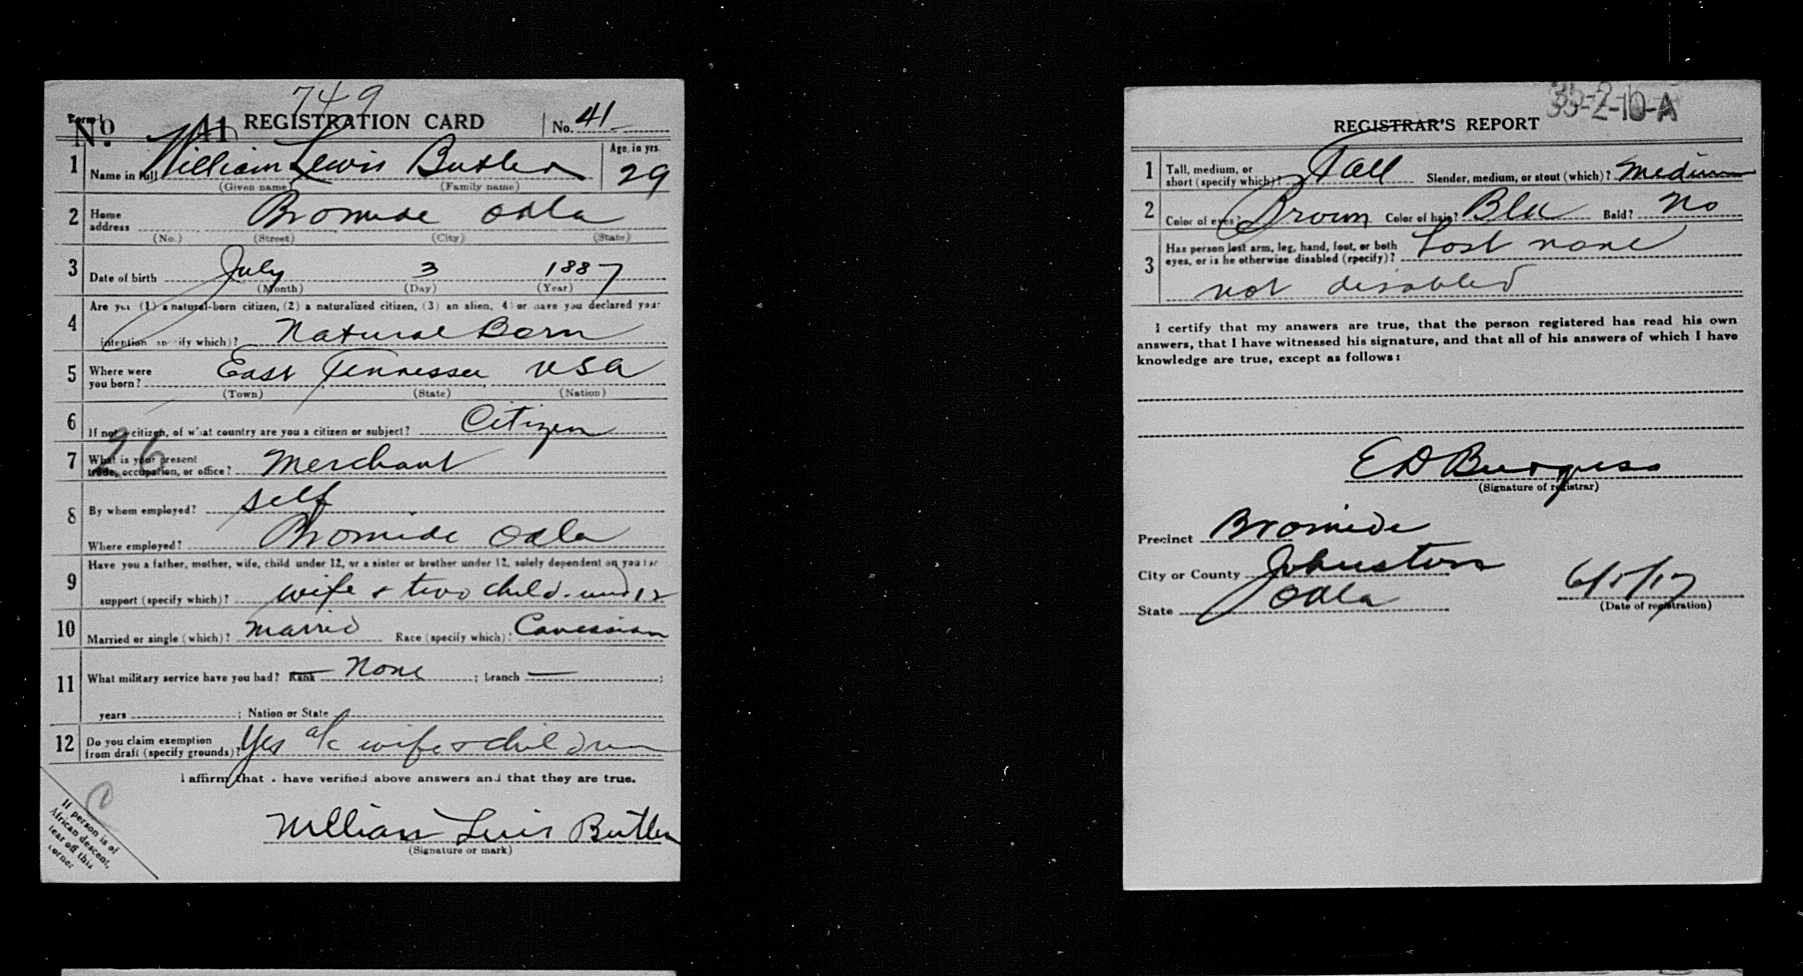 749
Form 1 REGISTRATION CARD No. 41
No. 41
1 Name in full William Lewis Butler Age, in yrs. 29
(Given name) (Family name)
2 Home address Bromide Okla
(No.) (Street) (City) (State)
3 Date of birth July 3 1887
(Month) (Day) (Year)
4 Are you (1) a natural-born citizen, (2) a naturalized citizen, (3) an alien, (4) or have you declared your
intention (specify which)? Natural Born
5 Where were you born? East Tennessee USA
(Town) (State) (Nation)
6 If not a citizen, of what country are you a citizen or subject? Citizen
26
7 What is your present trade, occupation, or office? Merchant
8 By whom employed? Self
Where employed? Bromide Okla
9 Have you a father, mother, wife, child under 12, or a sister or brother under 12, solely dependent on you for
support (specify which)? wife & two child. und 12
10 Married or single (which)? Married Race (specify which)? Caucasian
11 What military service have you had? Rank None ; branch — ;
years ; Nation or State
12 Do you claim exemption from draft (specify grounds)? Yes a/c wife & children
I affirm that I have verified above answers and that they are true.
William Luis Butler
(Signature or mark)
If person is of
African descent,
tear off this
corner
C
35-2-10-A
REGISTRAR'S REPORT
1 Tall, medium, or short (specify which)? Tall Slender, medium, or stout (which)? Medium
2 Color of eyes? Brown Color of hair? Blk Bald? No
3 Has person lost arm, leg, hand, foot, or both
eyes, or is he otherwise disabled (specify)? Lost none
not disabled
I certify that my answers are true, that the person registered has read his own
answers, that I have witnessed his signature, and that all of his answers of which I have
knowledge are true, except as follows:
E D Burgess
(Signature of registrar)
Precinct Bromide
City or County Johnston
State Okla 6/5/17
(Date of registration)